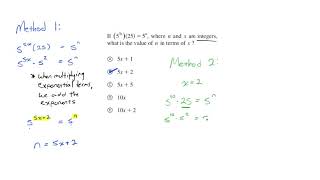 Method 1:
5^{5x}(25) = 5^n
5^{5x} · 5^2 = 5^n
* when multiplying
exponential terms,
we add the
exponents
5^{5x+2} = 5^n
n = 5x+2
If (5^{5x})(25) = 5^n, where n and x are integers,
what is the value of n in terms of x ?
A 5x + 1
B 5x + 2
C 5x + 5
D 10x
E 10x + 2
Method 2:
x = 2
5^{10} · 25 = 5^n
5^{10} · 5^2 = 5